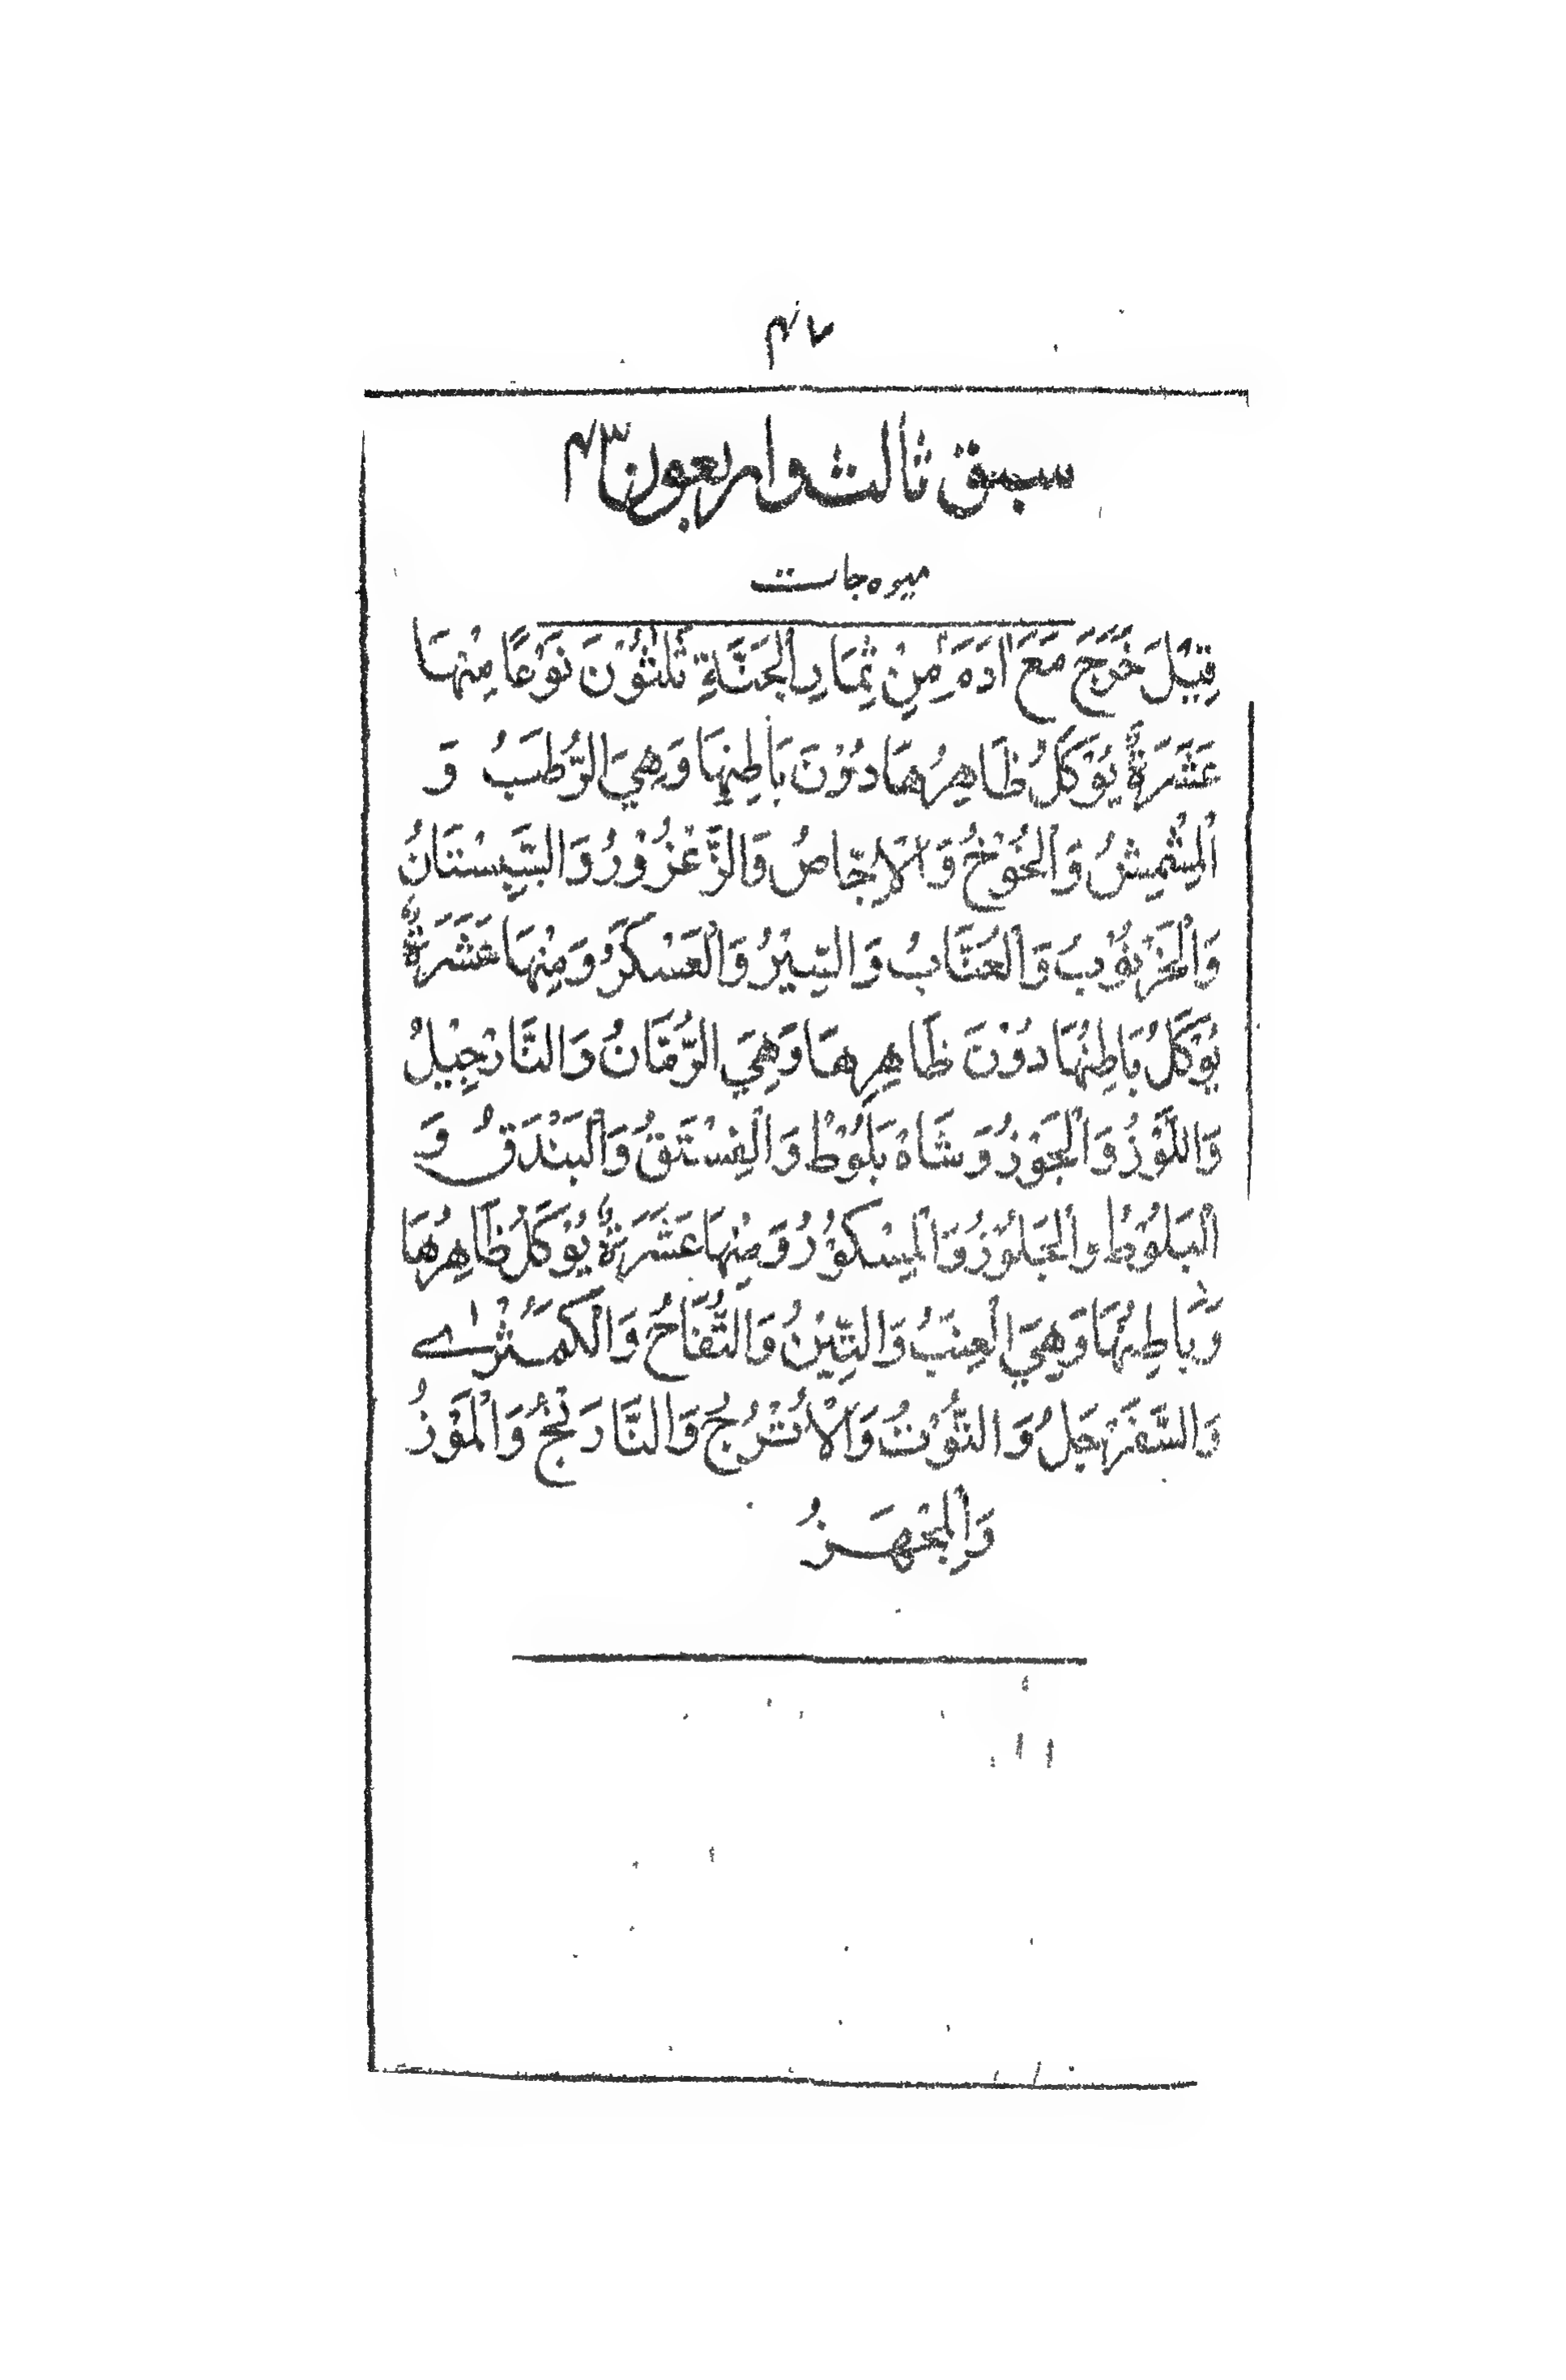 ۴۷
سبق ثالث واربعون ۴۳
میوہ جات
قِيْلَ خَرَجَ مَعَ اٰدَمَ مِنْ ثِمَارِ الْجَنَّةِ ثَلٰثُوْنَ نَوْعًا مِنْهَا
عَشَرَةٌ يُؤْكَلُ ظَاهِرُهَا دُوْنَ بَاطِنِهَا وَهِيَ الرُّطَبُ وَ
الْمِشْمِشُ وَالْخُوْخُ وَالْاِجَّاصُ وَالزَّعْزُوْرُ وَالسَّپِسْتَانُ
وَالْخَرْنُوْبُ وَالْعُنَّابُ وَالسِّيْرُ وَالْعَسْكَرُ وَمِنْهَا عَشَرَةٌ
يُؤْكَلُ بَاطِنُهَا دُوْنَ ظَاهِرِهَا وَهِيَ الرُّمَّانُ وَالنَّارْجِيْلُ
وَاللَّوْزُ وَالْجَوْزُ وَشَاهْ بَلُوْطْ وَالْفِسْتَقُ وَالْبَنْدَقُ وَ
الْبَلُوْطُ والْجَلَوْزُ وَالْمِسْكَوْرُ وَمِنْهَا عَشَرَةٌ يُؤْكَلُ ظَاهِرُهَا
وَبَاطِنُهَا وَهِيَ الْعِنَبُ وَالتِّيْنُ وَالتُّفَّاحُ وَالْكَمَّثْرٰے
وَالسَّفَرْجَلُ وَالتُّوْتُ وَالْاُتْرُجُ وَالنَّارَنْجُ وَالْمَوْزُ